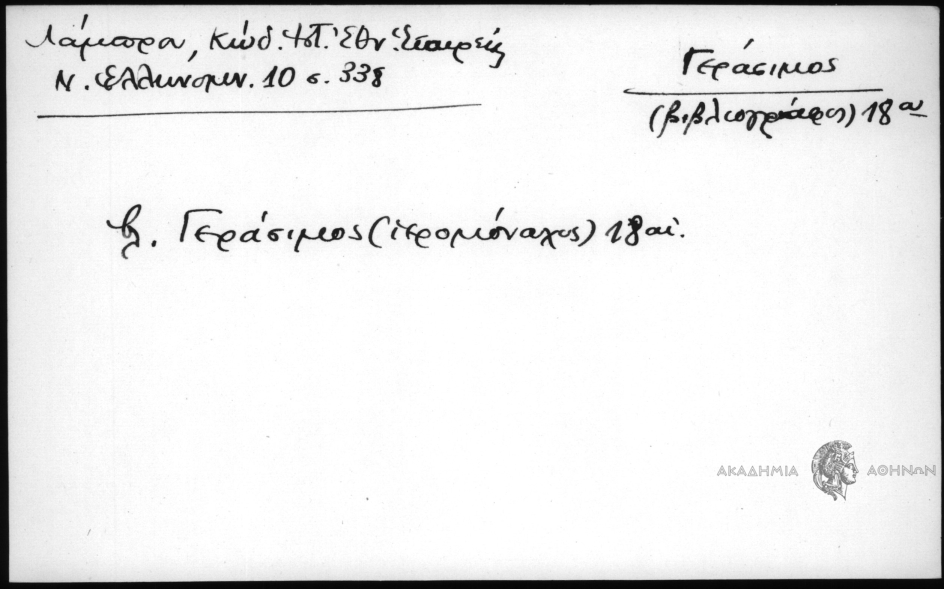 Λάμπρου, Κώδ. Ἱστ. Ἐθν. Ἑταιρείας
Ν. Ἑλληνομν. 10 σ. 338
Γεράσιμος
(βιβλιογράφος) 18 αι
βλ. Γεράσιμος (ἱερομόναχος) 18 αἰ.
ΑΚΑΔΗΜΙΑ ΑΘΗΝΩΝ